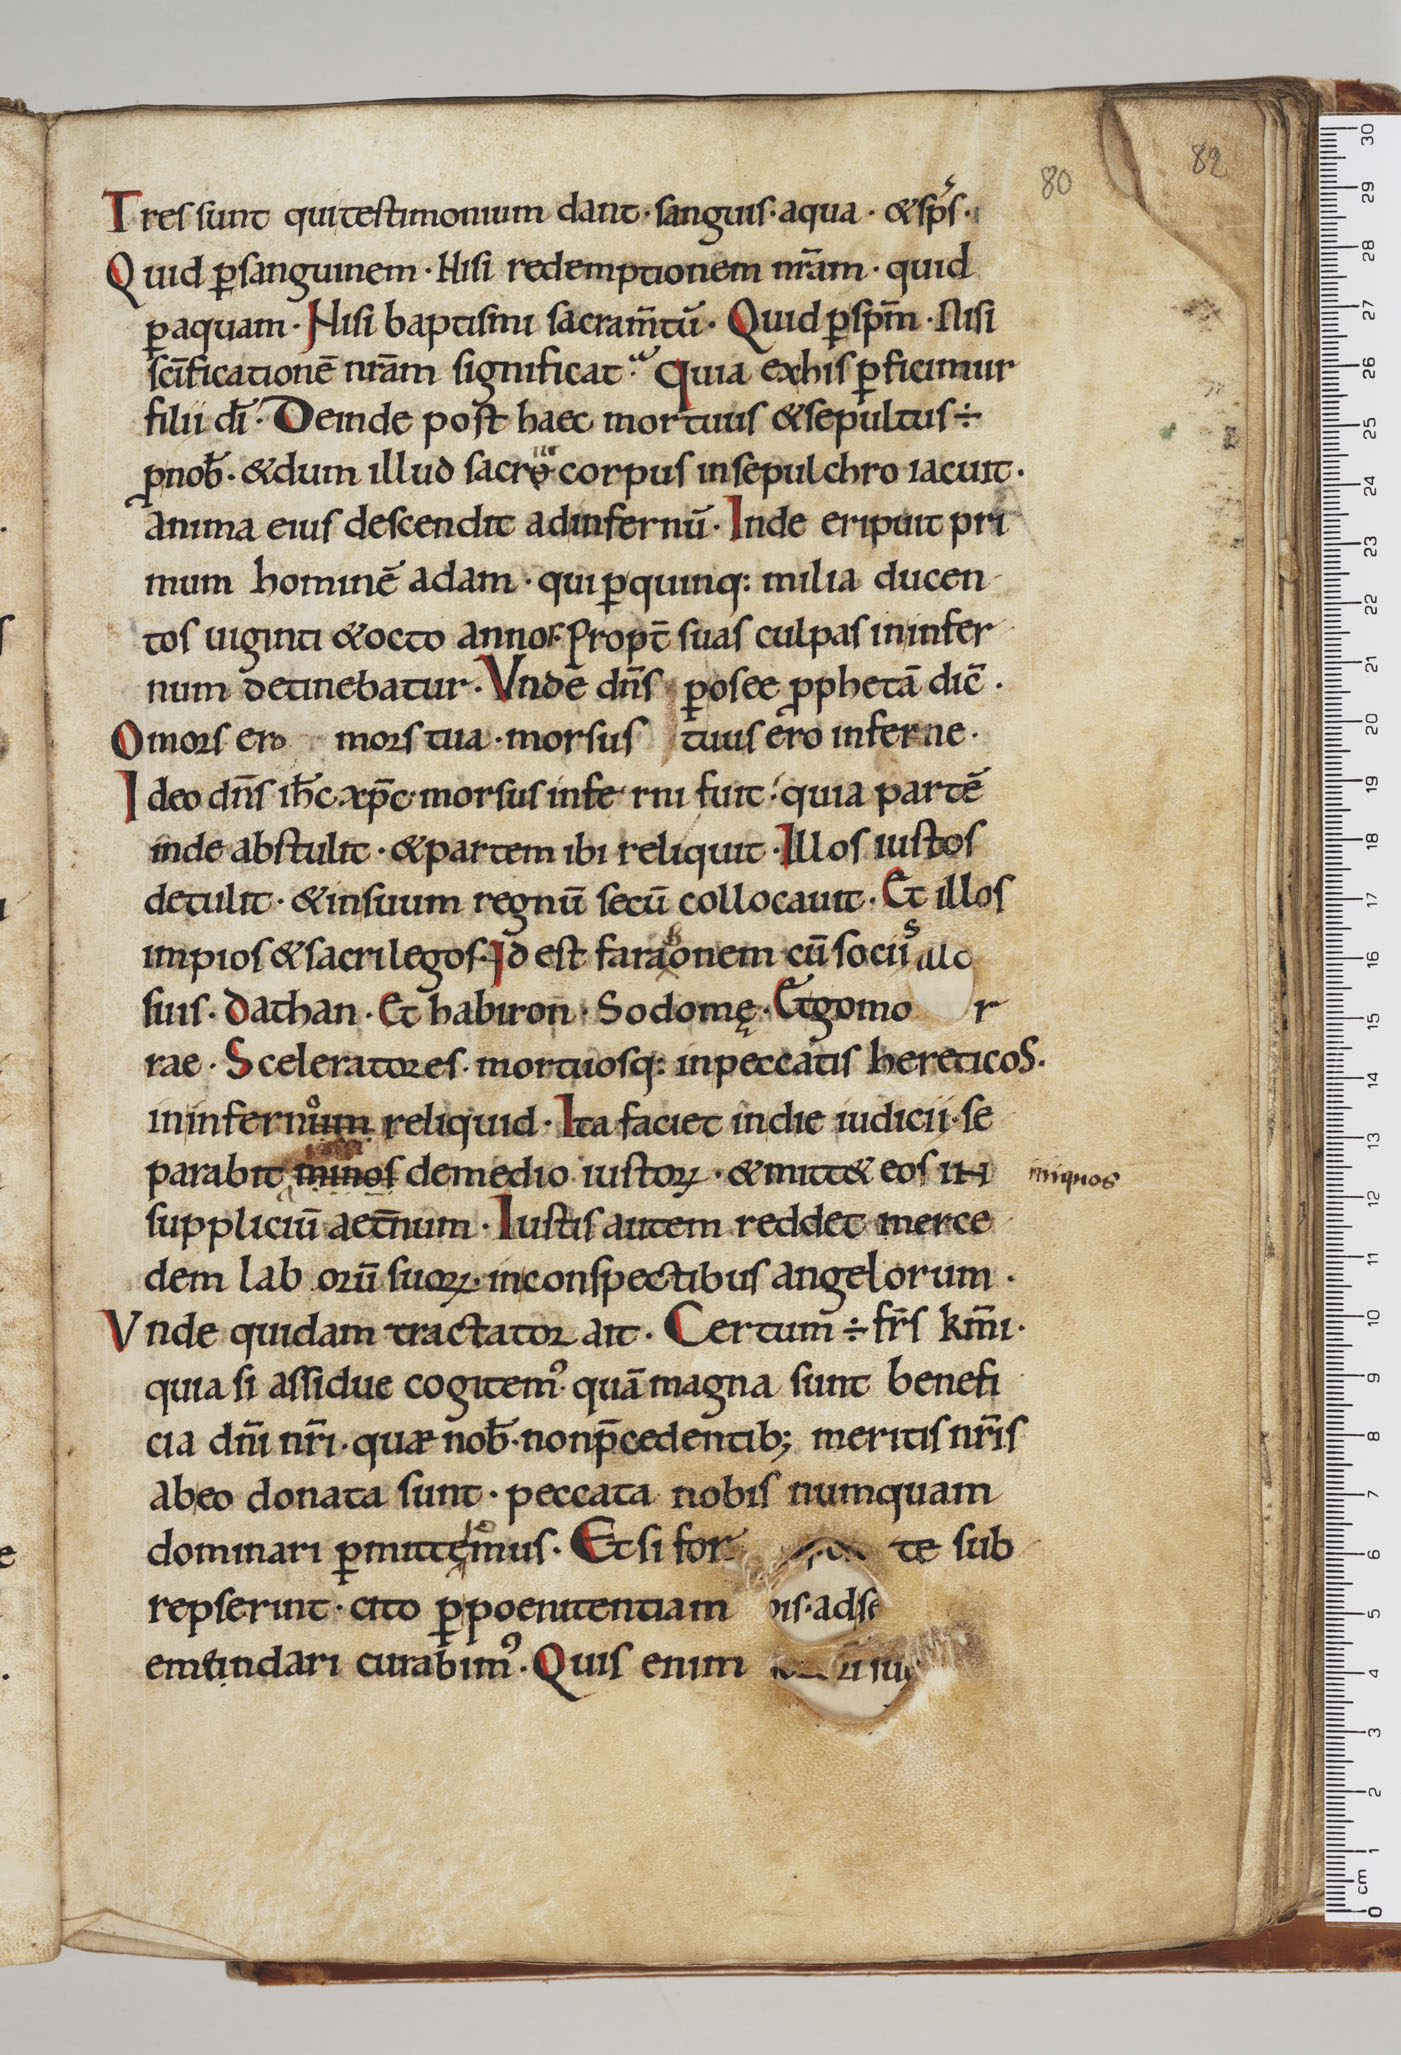 80
82
Tres sunt qui testimonium dant · sanguis · aqua · & sp̄s ·
Quid ꝑ sanguinem · Nisi redemptionem nr̄am · quid
ꝑ aquam · Nisi baptismi sacram̄tū · Quid ꝑ sp̄m · Nisi
sc̄ificationē nr̄am significat · Quia ex his ꝑficimur
filii dī · Deinde post haec mortuus & sepultus ÷
ꝓ nob̄ · & dum illud sacrū corpus in sepulchro iacuit ·
anima eius descendit ad infernū · Inde eripuit pri
mum hominē adam · qui ꝑ quinq: milia ducen
tos uiginti & octo annos · Propt̄ suas culpas in infer
num detinebatur · Vnde dn̄s ꝑ osee ꝓphetā dic̄ ·
O mors ero mors tua · morsus tuus ero inferne ·
Ideo dn̄s ih̄c xp̄c · morsus inferni fuit · quia partē
inde abstulit · & partem ibi reliquit · Illos iustos
detulit · & in suum regnū secū collocauit · Et illos
impios & sacrilegos · Id est farahonem cū sociis
suis · Dathan · Et habiron · Sodomę · Et gomo r
rae · Sceleratores · mortuosq: in peccatis hereticos ·
in infernum reliquid · Ita faciet in die iudicii · se
parabit minos de medio iustoꝝ · & mitt& eos in iniquos
suppliciū aet̄num · Iustis autem reddet merce
dem laborū suoꝝ · in conspectibus angelorum ·
Vnde quidam tractator ait · Certum ÷ fr̄s km̄i ·
quia si assidue cogitemꝰ · quā magna sunt benefi
cia dn̄i nr̄i · quæ nob̄ · non p̄cedentib; meritis nr̄is
ab eo donata sunt · peccata nobis numquam
dominari ꝑmittemus · Et si for te sub
repserint · cito ꝑ poenitentiam
emendari curabimꝰ · Quis enim